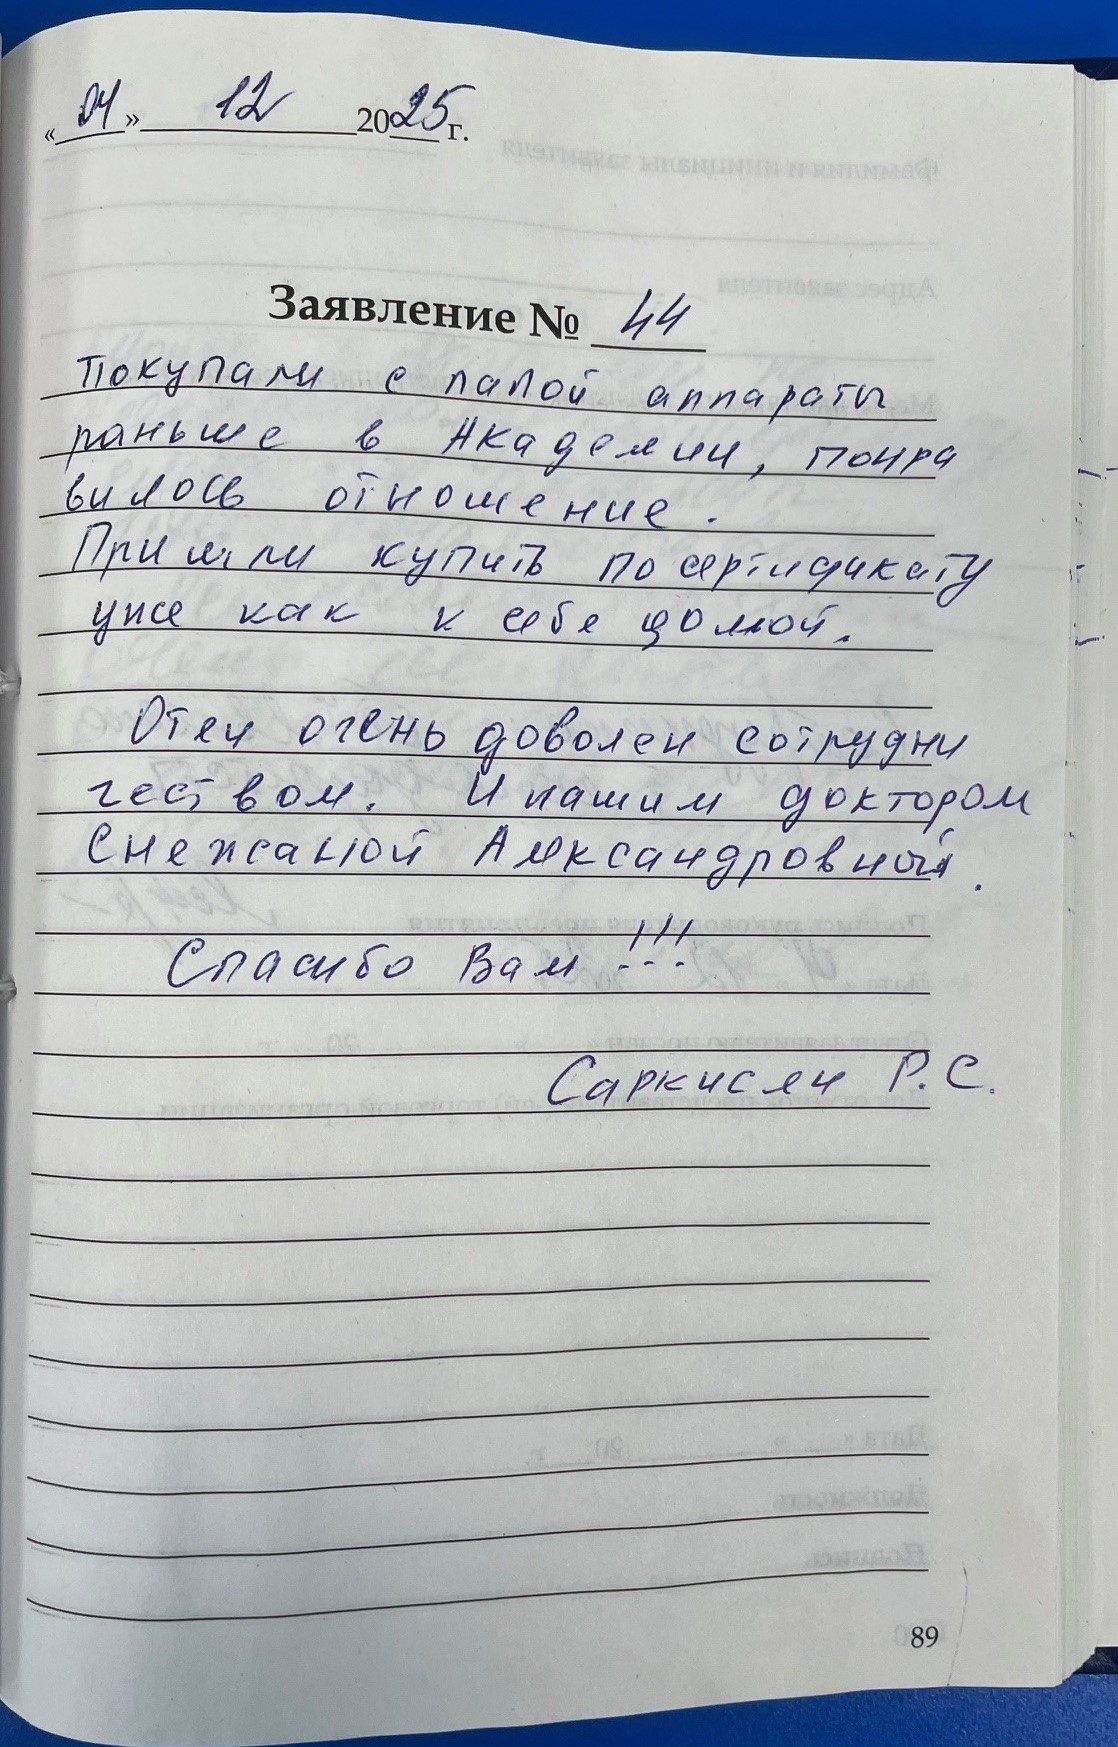 «04» 12 2025 г.
Заявление № 44
Покупали с папой аппараты
раньше в Академии, понра
вилось отношение.
Пришли купить по сертификату
уже как к себе домой.
Отец очень доволен сотрудни
чеством. И нашим доктором
Снежаной Александровной.
Спасибо Вам !!!
Саркисян Р.С.
89